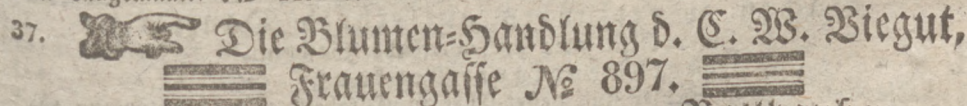 37. ☞ Die Blumen=Handlung d. C. W. Viegut,
Frauengasse № 897.